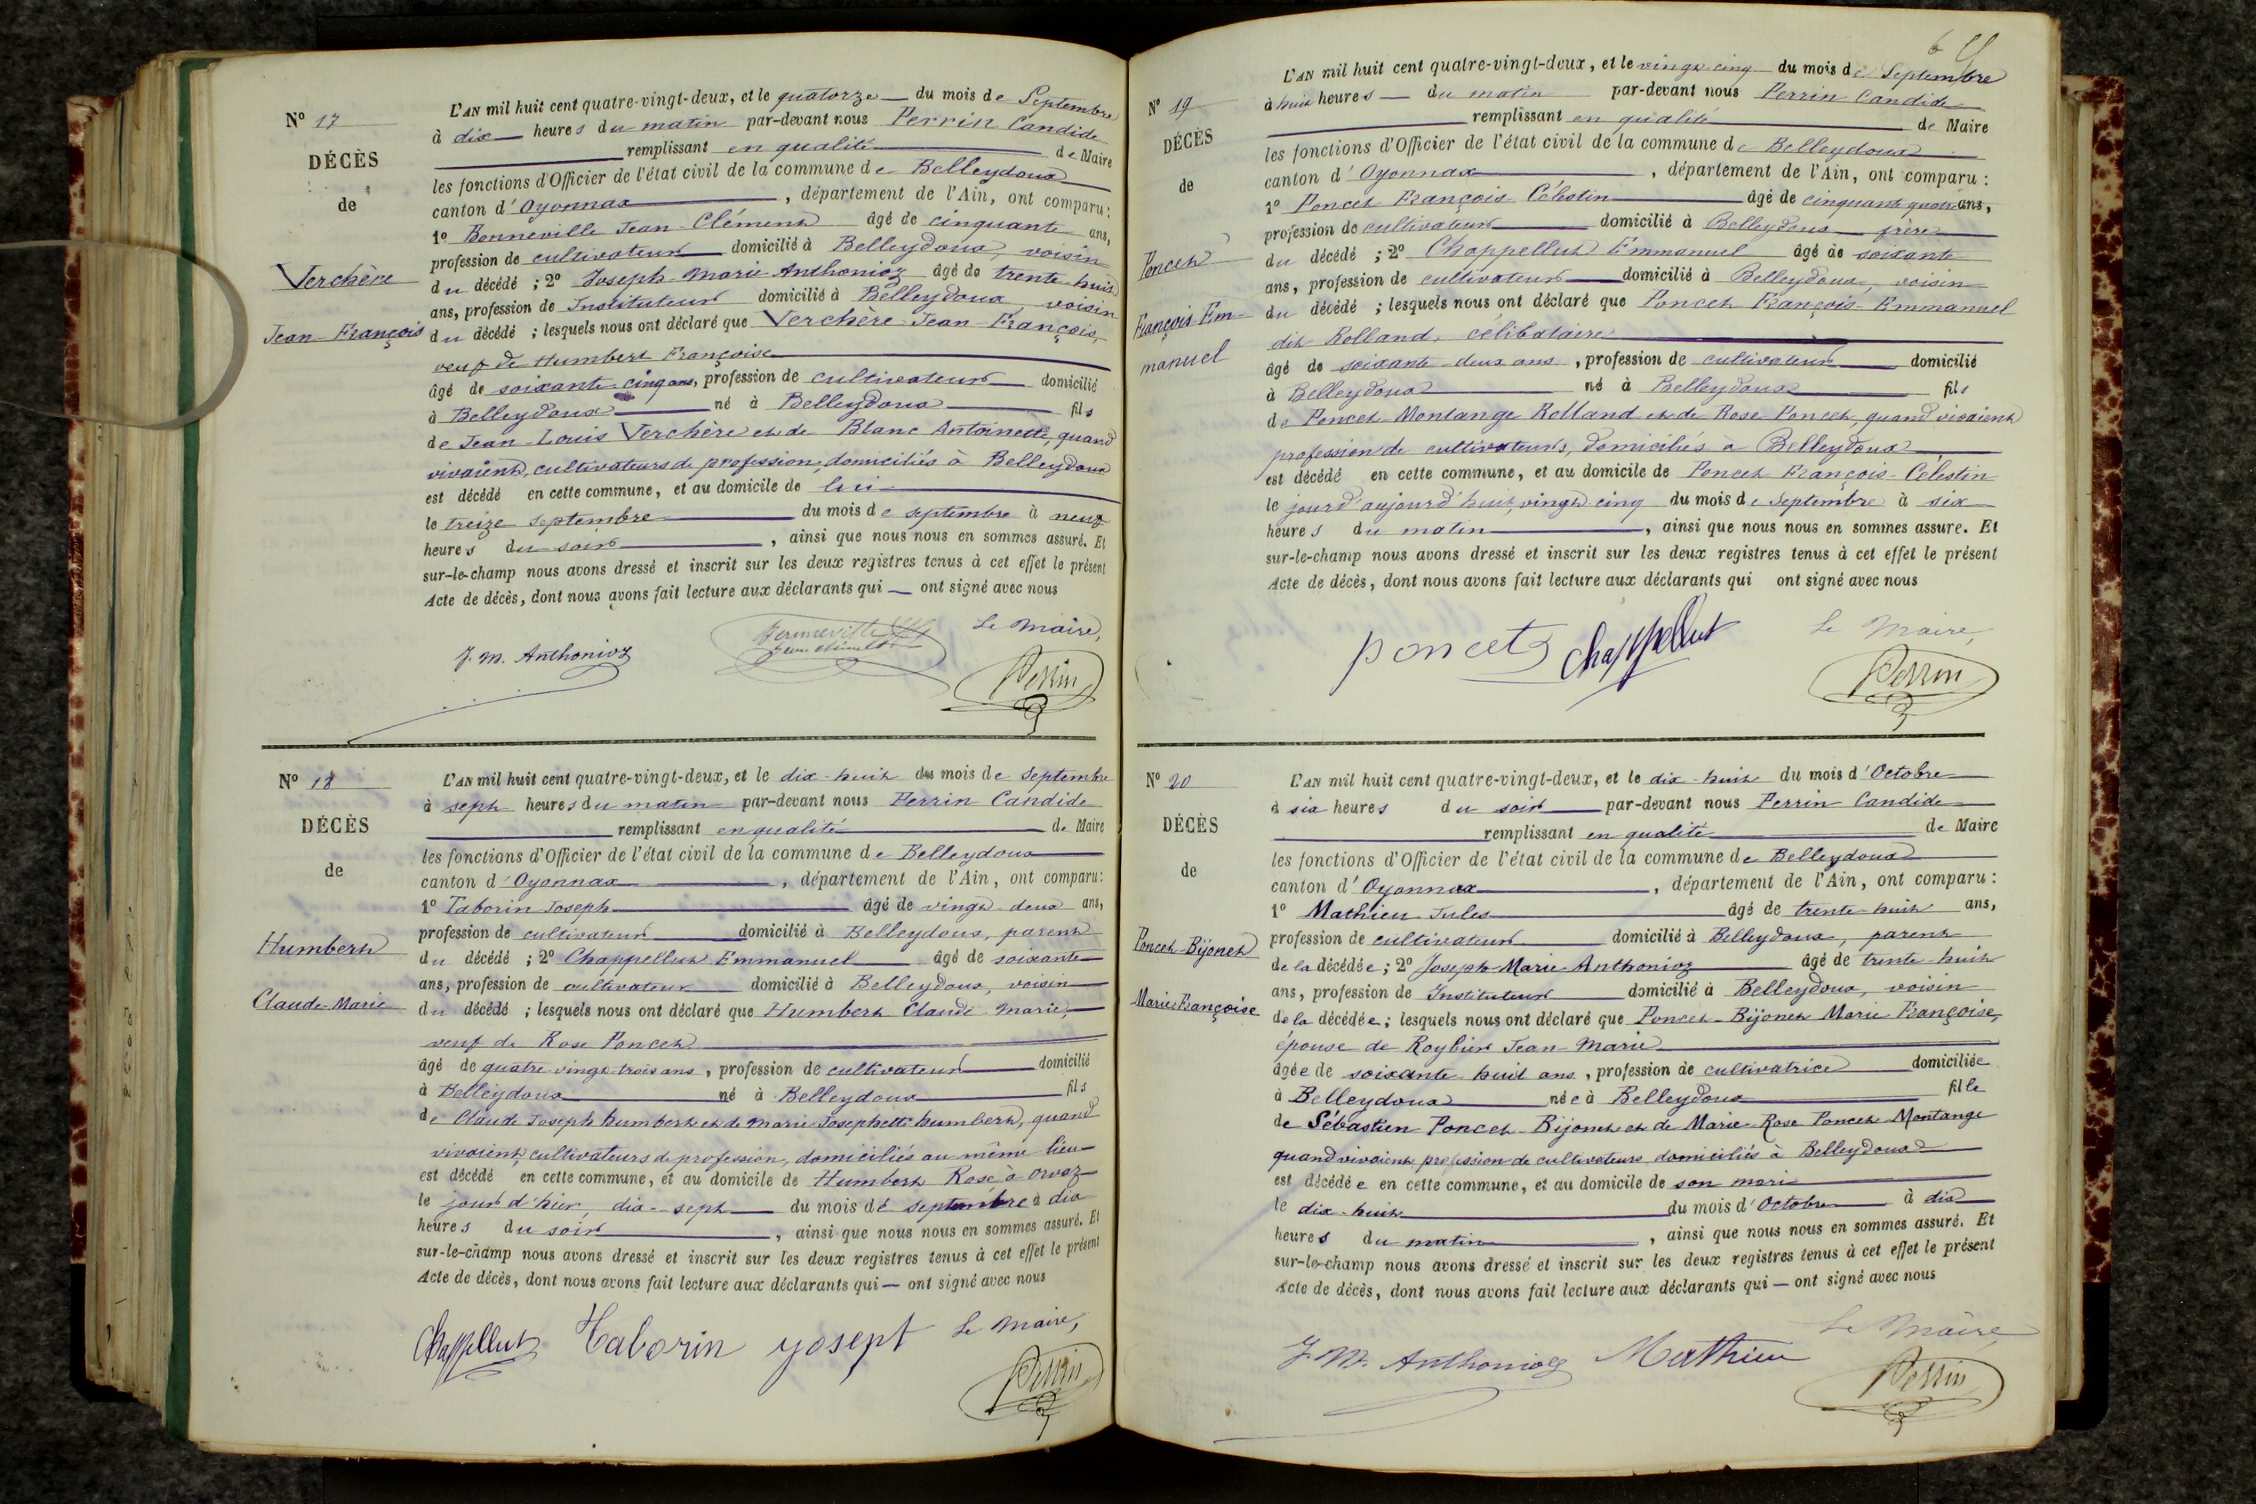 N° 17
DÉCÈS
de
Verchère
Jean-François
L'AN mil huit cent quatre-vingt-deux, et le quatorze du mois de Septembre
à dix heures du matin par-devant nous Perrin Candide
remplissant en qualité de Maire
les fonctions d'Officier de l'état civil de la commune de Belleydoux
canton d'Oyonnax, département de l'Ain, ont comparu:
1° Bonneville Jean-Clément âgé de cinquante ans,
profession de cultivateur domicilié à Belleydoux, voisin
du décédé ; 2° Joseph-Marie Anthonioz âgé de trente-huit
ans, profession de Instituteur domicilié à Belleydoux, voisin
du décédé ; lesquels nous ont déclaré que Verchère Jean-François,
veuf de Humbert Françoise
âgé de soixante-cinq ans, profession de cultivateur domicilié
à Belleydoux né à Belleydoux fils
de Jean-Louis Verchère et de Blanc Antoinette, quand
vivaient, cultivateurs de profession, domiciliés à Belleydoux
est décédé en cette commune, et au domicile de lui
le treize septembre du mois de septembre à neuf
heures du soir, ainsi que nous nous en sommes assuré. Et
sur-le-champ nous avons dressé et inscrit sur les deux registres tenus à cet effet le présent
Acte de décès, dont nous avons fait lecture aux déclarants qui — ont signé avec nous
Le Maire,
J. M. Anthonioz
Perrin
N° 18
DÉCÈS
de
Humbert
Claude-Marie
L'AN mil huit cent quatre-vingt-deux, et le dix-huit du mois de Septembre
à sept heures du matin par-devant nous Perrin Candide
remplissant en qualité de Maire
les fonctions d'Officier de l'état civil de la commune de Belleydoux
canton d'Oyonnax, département de l'Ain, ont comparu:
1° Taborin Joseph âgé de vingt-deux ans,
profession de cultivateur domicilié à Belleydoux, parent
du décédé ; 2° Chappellut Emmanuel âgé de soixante
ans, profession de cultivateur domicilié à Belleydoux, voisin
du décédé ; lesquels nous ont déclaré que Humbert Claude-Marie,
veuf de Rose Poncet
âgé de quatre-vingt-trois ans, profession de cultivateur domicilié
à Belleydoux né à Belleydoux fils
de Claude Joseph humbert et de Marie Josephette humbert, quand
vivaient, cultivateurs de profession, domiciliés au même lieu
est décédé en cette commune, et au domicile de Humbert Rose à Orvaz
le jour d'hier, dix-sept du mois de septembre à dix
heures du soir, ainsi que nous nous en sommes assuré. Et
sur-le-champ nous avons dressé et inscrit sur les deux registres tenus à cet effet le présent
Acte de décès, dont nous avons fait lecture aux déclarants qui — ont signé avec nous
Chappellut Taborin yosept Le Maire,
Perrin
6
N° 19
DÉCÈS
de
Poncet
François-Em-
manuel
L'AN mil huit cent quatre-vingt-deux, et le vingt-cinq du mois de Septembre
à huit heures du matin par-devant nous Perrin Candide
remplissant en qualité de Maire
les fonctions d'Officier de l'état civil de la commune de Belleydoux
canton d'Oyonnax, département de l'Ain, ont comparu:
1° Poncet François Célestin âgé de cinquante-quatre ans,
profession de cultivateur domicilié à Belleydoux frère
du décédé ; 2° Chappellut Emmanuel âgé de soixante
ans, profession de cultivateur domicilié à Belleydoux, voisin
du décédé ; lesquels nous ont déclaré que Poncet François-Emmanuel
dit Rolland, célibataire
âgé de soixante-deux ans, profession de cultivateur domicilié
à Belleydoux né à Belleydoux fils
de Poncet Montange Rolland et de Rose Poncet, quand vivaient
profession de cultivateurs, domiciliés à Belleydoux
est décédé en cette commune, et au domicile de Poncet François-Célestin
le jour d'aujourd'hui, vingt-cinq du mois de Septembre à six
heures du matin, ainsi que nous nous en sommes assuré. Et
sur-le-champ nous avons dressé et inscrit sur les deux registres tenus à cet effet le présent
Acte de décès, dont nous avons fait lecture aux déclarants qui ont signé avec nous
Poncet Chappellut Le Maire,
Perrin
N° 20
DÉCÈS
de
Poncet-Bijonet
Marie Françoise
L'AN mil huit cent quatre-vingt-deux, et le dix-huit du mois d'Octobre
à six heures du soir par-devant nous Perrin Candide
remplissant en qualité de Maire
les fonctions d'Officier de l'état civil de la commune de Belleydoux
canton d'Oyonnax, département de l'Ain, ont comparu:
1° Mathieu Jules âgé de trente-huit ans,
profession de cultivateur domicilié à Belleydoux, parent
de la décédée ; 2° Joseph-Marie Anthonioz âgé de trente-huit
ans, profession de Instituteur domicilié à Belleydoux, voisin
de la décédée ; lesquels nous ont déclaré que Poncet-Bijonet Marie Françoise,
épouse de Roybier Jean-Marie
âgée de soixante-huit ans, profession de cultivatrice domiciliée
à Belleydoux née à Belleydoux fille
de Sébastien Poncet-Bijonet et de Marie-Rose Poncet-Montange
quand vivaient profession de cultivateurs domiciliés à Belleydoux
est décédée en cette commune, et au domicile de son mari
le dix-huit du mois d'Octobre à dix
heures du matin, ainsi que nous nous en sommes assuré. Et
sur-le-champ nous avons dressé et inscrit sur les deux registres tenus à cet effet le présent
Acte de décès, dont nous avons fait lecture aux déclarants qui — ont signé avec nous
Le Maire,
J. M. Anthonioz Mathieu
Perrin